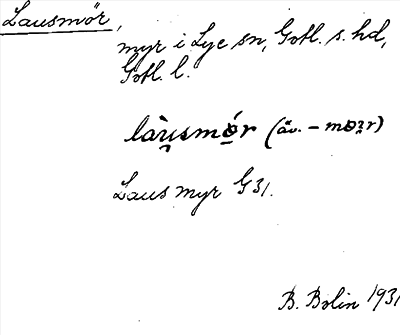 Lausmör,
myr i Lye sn, Gotl. s. hd,
Gotl. l.
làu̯smǿ̱r (äv. – mo̱ꝛ̱r)
Laus myr G31.
B. Bolin 1931